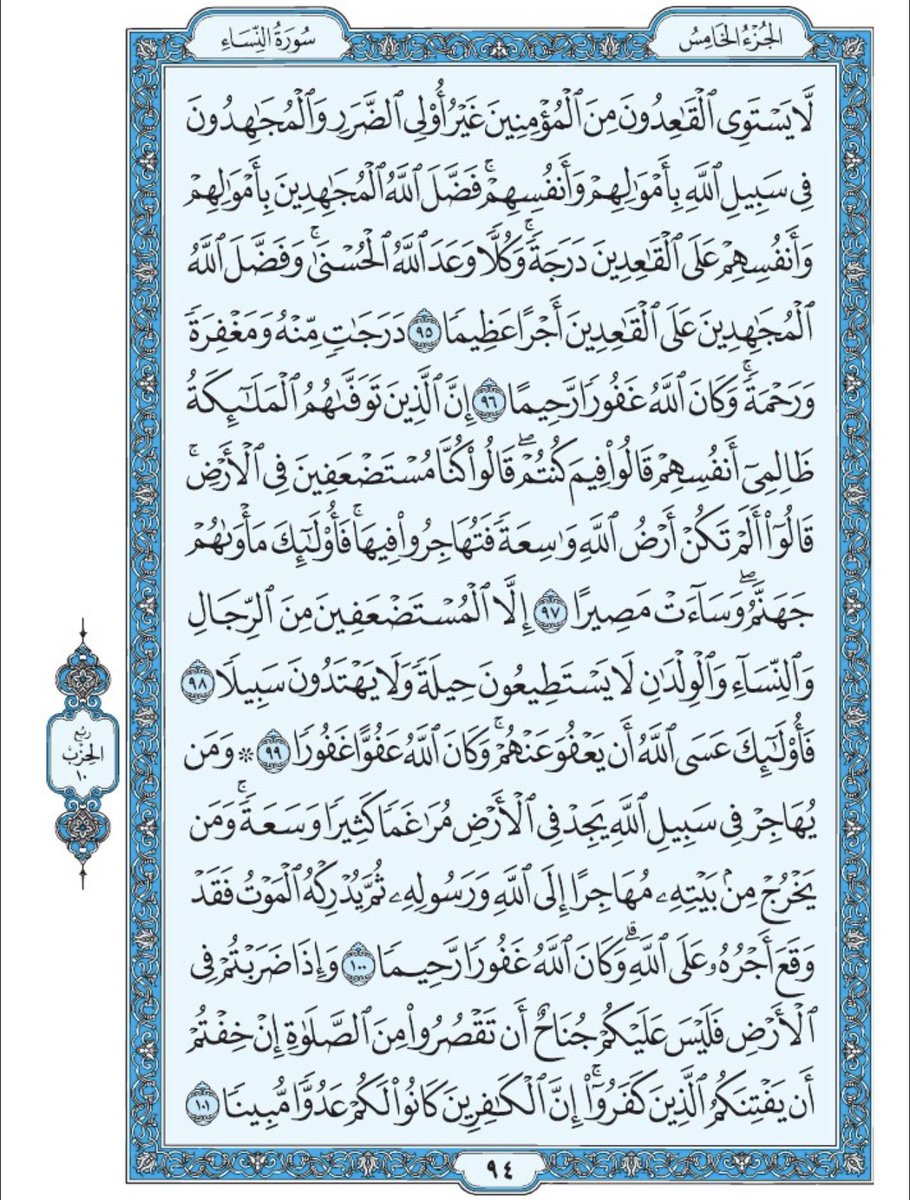 الجُزْءُ الخَامِسُ
سُورَةُ النِّسَاءِ
لَّا يَسْتَوِى ٱلْقَـٰعِدُونَ مِنَ ٱلْمُؤْمِنِينَ غَيْرُ أُو۟لِى ٱلضَّرَرِ وَٱلْمُجَـٰهِدُونَ
فِى سَبِيلِ ٱللَّهِ بِأَمْوَٰلِهِمْ وَأَنفُسِهِمْ ۚ فَضَّلَ ٱللَّهُ ٱلْمُجَـٰهِدِينَ بِأَمْوَٰلِهِمْ
وَأَنفُسِهِمْ عَلَى ٱلْقَـٰعِدِينَ دَرَجَةً ۚ وَكُلًّا وَعَدَ ٱللَّهُ ٱلْحُسْنَىٰ ۚ وَفَضَّلَ ٱللَّهُ
ٱلْمُجَـٰهِدِينَ عَلَى ٱلْقَـٰعِدِينَ أَجْرًا عَظِيمًا ٩٥ دَرَجَـٰتٍ مِّنْهُ وَمَغْفِرَةً
وَرَحْمَةً ۚ وَكَانَ ٱللَّهُ غَفُورًا رَّحِيمًا ٩٦ إِنَّ ٱلَّذِينَ تَوَفَّىٰهُمُ ٱلْمَلَـٰٓئِكَةُ
ظَالِمِىٓ أَنفُسِهِمْ قَالُوا۟ فِيمَ كُنتُمْ ۖ قَالُوا۟ كُنَّا مُسْتَضْعَفِينَ فِى ٱلْأَرْضِ ۚ
قَالُوٓا۟ أَلَمْ تَكُنْ أَرْضُ ٱللَّهِ وَٰسِعَةً فَتُهَاجِرُوا۟ فِيهَا ۚ فَأُو۟لَـٰٓئِكَ مَأْوَىٰهُمْ
جَهَنَّمُ ۖ وَسَآءَتْ مَصِيرًا ٩٧ إِلَّا ٱلْمُسْتَضْعَفِينَ مِنَ ٱلرِّجَالِ
وَٱلنِّسَآءِ وَٱلْوِلْدَٰنِ لَا يَسْتَطِيعُونَ حِيلَةً وَلَا يَهْتَدُونَ سَبِيلًا ٩٨
فَأُو۟لَـٰٓئِكَ عَسَى ٱللَّهُ أَن يَعْفُوَ عَنْهُمْ ۚ وَكَانَ ٱللَّهُ عَفُوًّا غَفُورًا ٩٩ ۞ وَمَن
يُهَاجِرْ فِى سَبِيلِ ٱللَّهِ يَجِدْ فِى ٱلْأَرْضِ مُرَٰغَمًا كَثِيرًا وَسَعَةً ۚ وَمَن
يَخْرُجْ مِنۢ بَيْتِهِۦ مُهَاجِرًا إِلَى ٱللَّهِ وَرَسُولِهِۦ ثُمَّ يُدْرِكْهُ ٱلْمَوْتُ فَقَدْ
وَقَعَ أَجْرُهُۥ عَلَى ٱللَّهِ ۗ وَكَانَ ٱللَّهُ غَفُورًا رَّحِيمًا ١٠٠ وَإِذَا ضَرَبْتُمْ فِى
ٱلْأَرْضِ فَلَيْسَ عَلَيْكُمْ جُنَاحٌ أَن تَقْصُرُوا۟ مِنَ ٱلصَّلَوٰةِ إِنْ خِفْتُمْ
أَن يَفْتِنَكُمُ ٱلَّذِينَ كَفَرُوٓا۟ ۚ إِنَّ ٱلْكَـٰفِرِينَ كَانُوا۟ لَكُمْ عَدُوًّا مُّبِينًا ١٠١
رُبْعُ
الحِزْبُ
١٠
٩٤